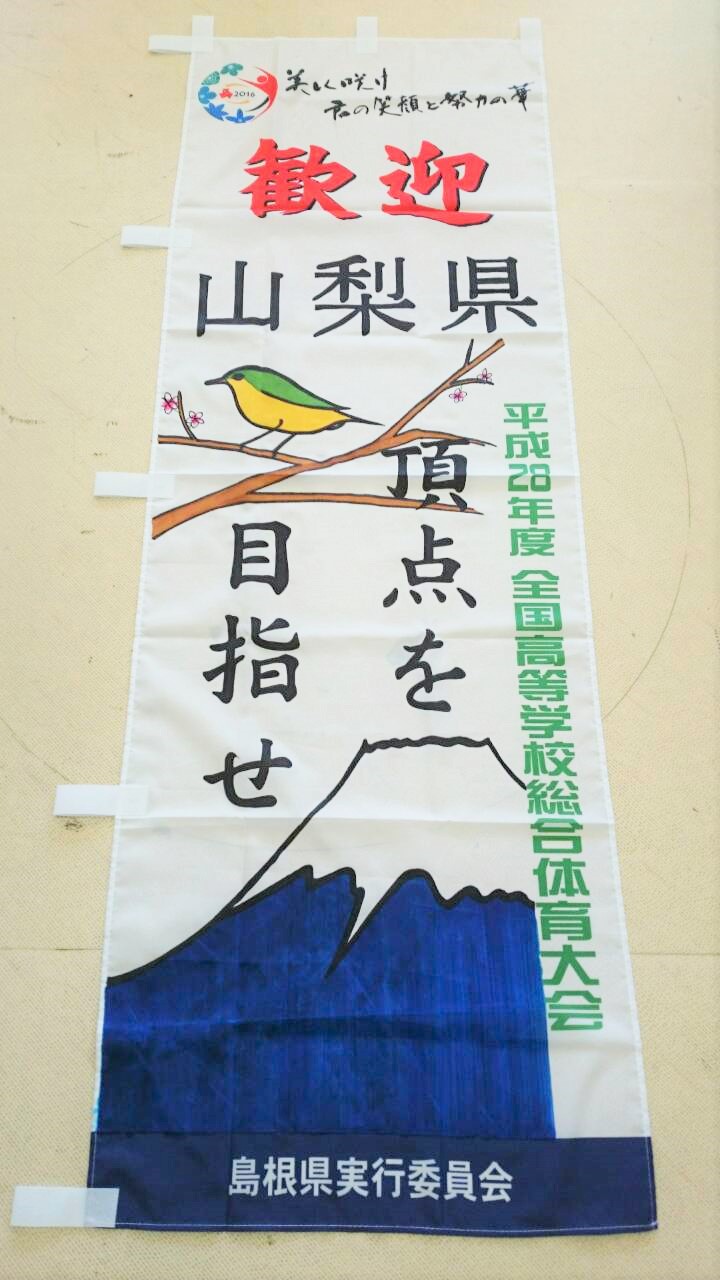 2016
美しく咲け
君の笑顔と努力の華
歓迎
山梨県
平成28年度 全国高等学校総合体育大会
頂点を
目指せ
島根県実行委員会